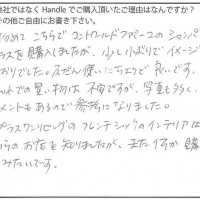 他社ではなく Handle でご購入頂いた理由はなんですか?
その他ご自由にお書き下さい。
初めて こちらで コントワールドファミーユの シャンパ
ラスを購入しましたが、少し小ぶりでイメージ
おりでした。ふだん使いにちょうど良いです。
ットでの買い物は 不安ですが、写真も多く、
メントもあるので参考になりました。
プラスワンリビングの フレンチシックのインテリアに
らのお店を知りましたが、また 何か 購
みたいです。